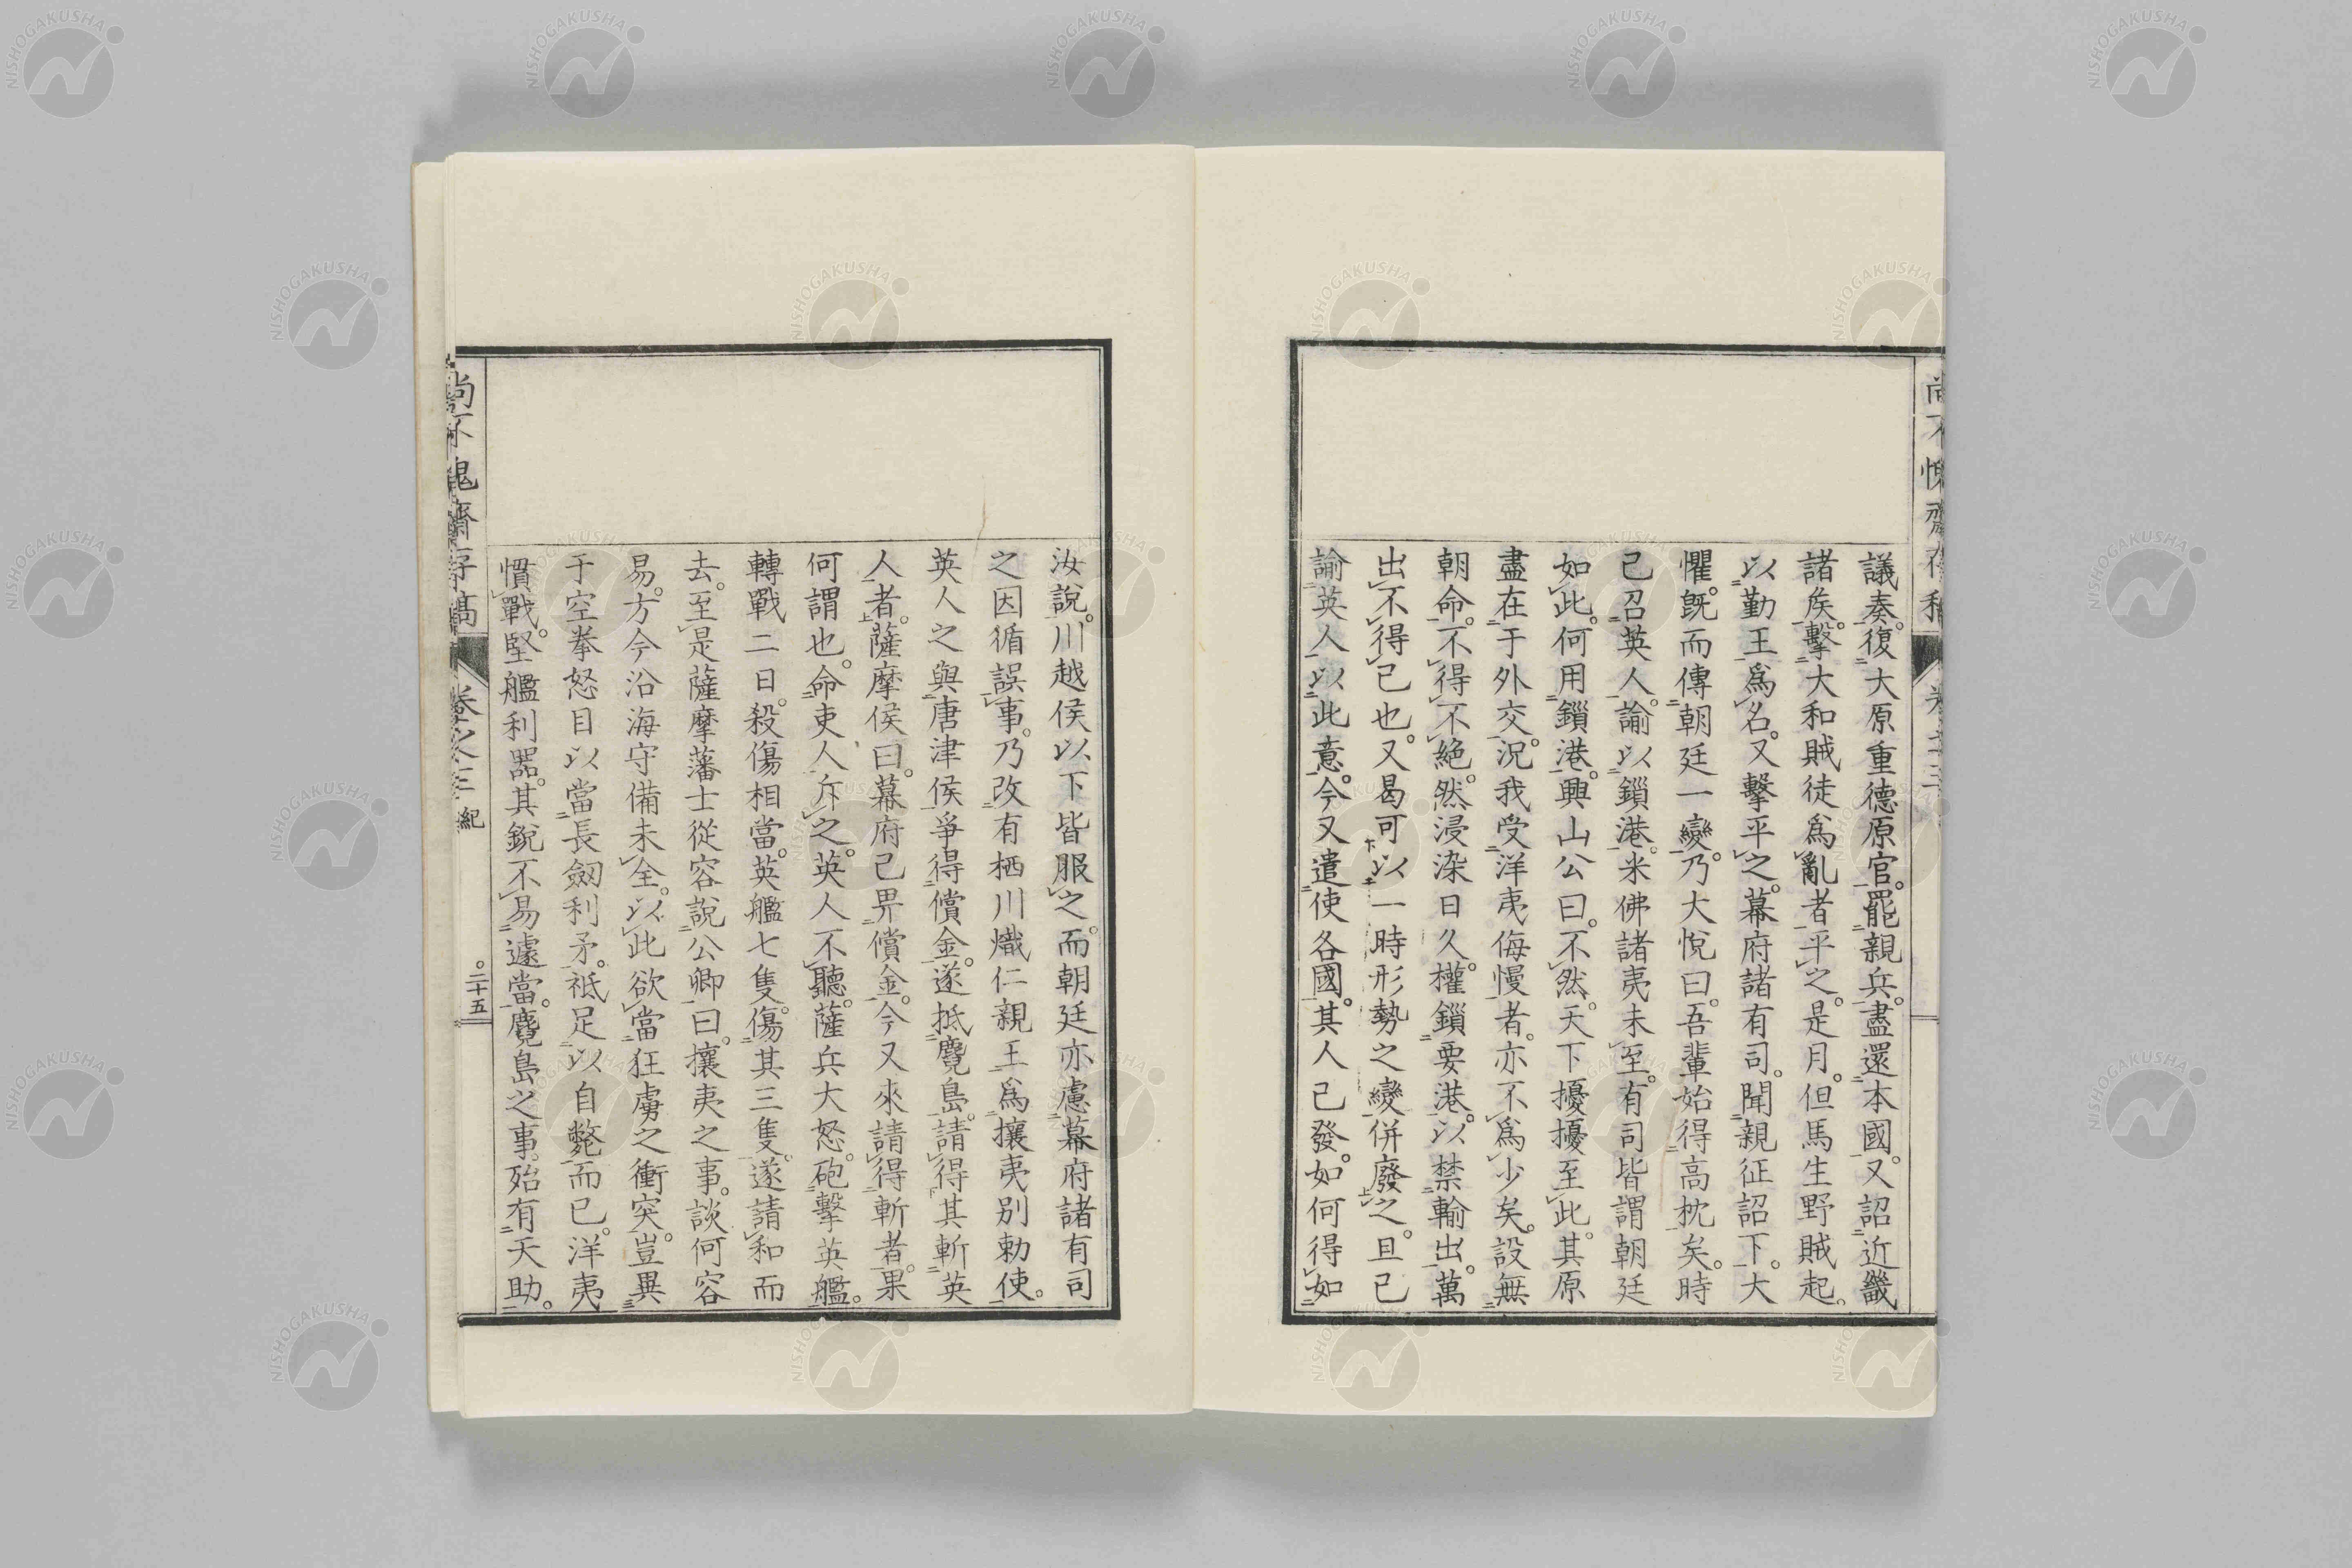 議奏。復大原重德原官。罷親兵。盡還本國。又詔近畿
諸矦。擊大和賊徒爲亂者平之。是月。但馬生野賊起。
以勤王爲名。又擊平之。幕府諸有司。聞親征詔下。大
懼。旣而傳朝廷一變。乃大悅曰。吾輩始得高枕矣。時
已召英人。諭以鎻港。米佛諸夷未至。有司皆謂朝廷
如此。何用鎻港。興山公曰。不然。天下擾擾至此。其原
盡在于外交。況我受洋夷侮慢者。亦不爲少矣。設無
朝命。不得不絕。然浸染日久。權鎻要港。以禁輸出。萬
出不得已也。又曷可以一時形勢之變併廢之。且已
諭英人以此意。今又遣使各國。其人已發。如何得如
汝說。川越侯以下皆服之。而朝廷亦慮幕府諸有司
之因循誤事。乃改有栖川熾仁親王爲攘夷別勅使。
英人之與唐津侯爭得償金。遂抵麑島。請得其斬英
人者。薩摩侯曰。幕府已畀償金。今又來請得斬者。果
何謂也。命吏人斥之。英人不聽。薩兵大怒。砲擊英艦。
轉戰二日。殺傷相當。英艦七隻。傷其三隻。遂請和而
去。至是薩摩藩士從容說公卿曰。攘夷之事。談何容
易。方今沿海守備未全。以此欲當狂虜之衝突。豈異
于空拳怒目以當長劒利矛。祗足以自斃而已。洋夷
慣戰。堅艦利器。其銳不易遽當。麑島之事。殆有天助。
尚不愧齋存稿
卷之三
紀
二十五
NISHOGAKUSHA